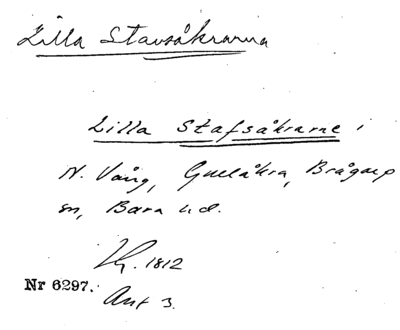 Lilla Stavsåkrarna
Lilla Stafsåkrarne i
N. Vång, Gullåkra, Brågarp
sn, Bara hd.
1812
Nr 6297.
Akt 3.